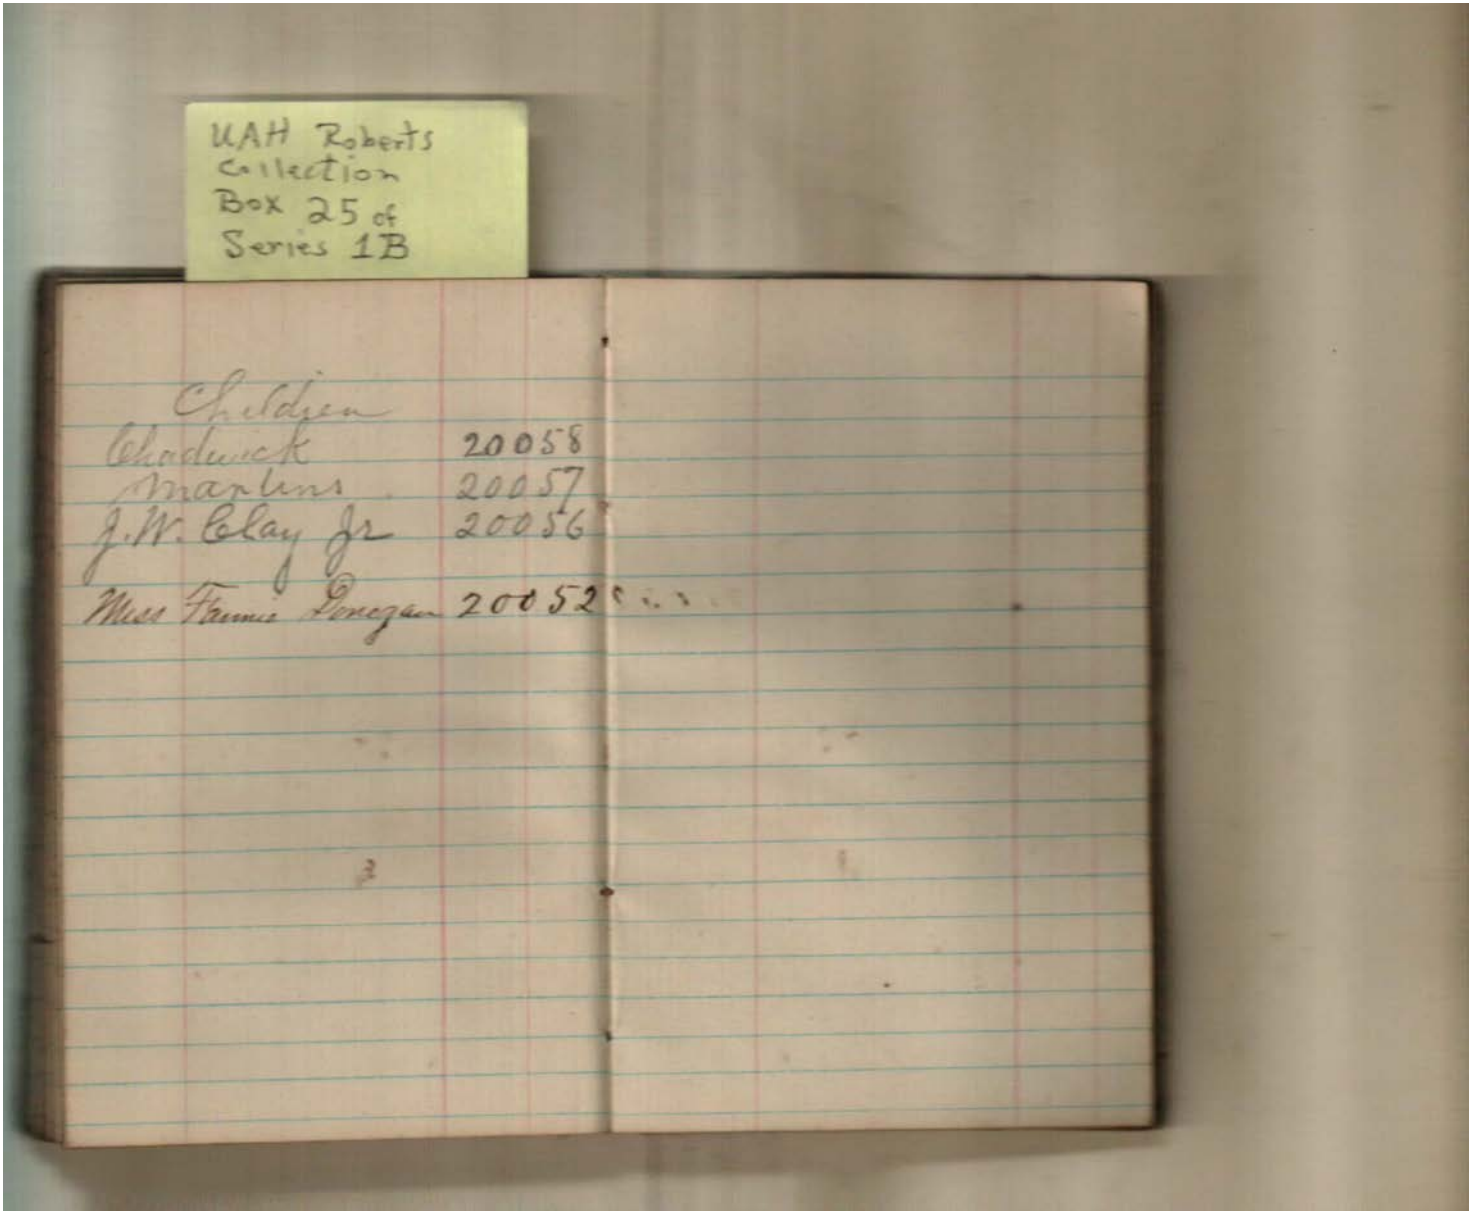 UAH Roberts
Collection
Box 25 of
Series 1B
Children
Chadwick 20058
20057
J.W. Clay Jr 20056
Miss Fannie Donegan 20052